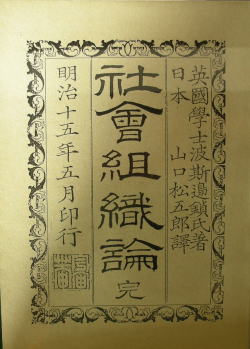 英國學士波斯邊鎖氏著
日本　山口松五郎譯
社會組織論 完
明治十五年五月印行